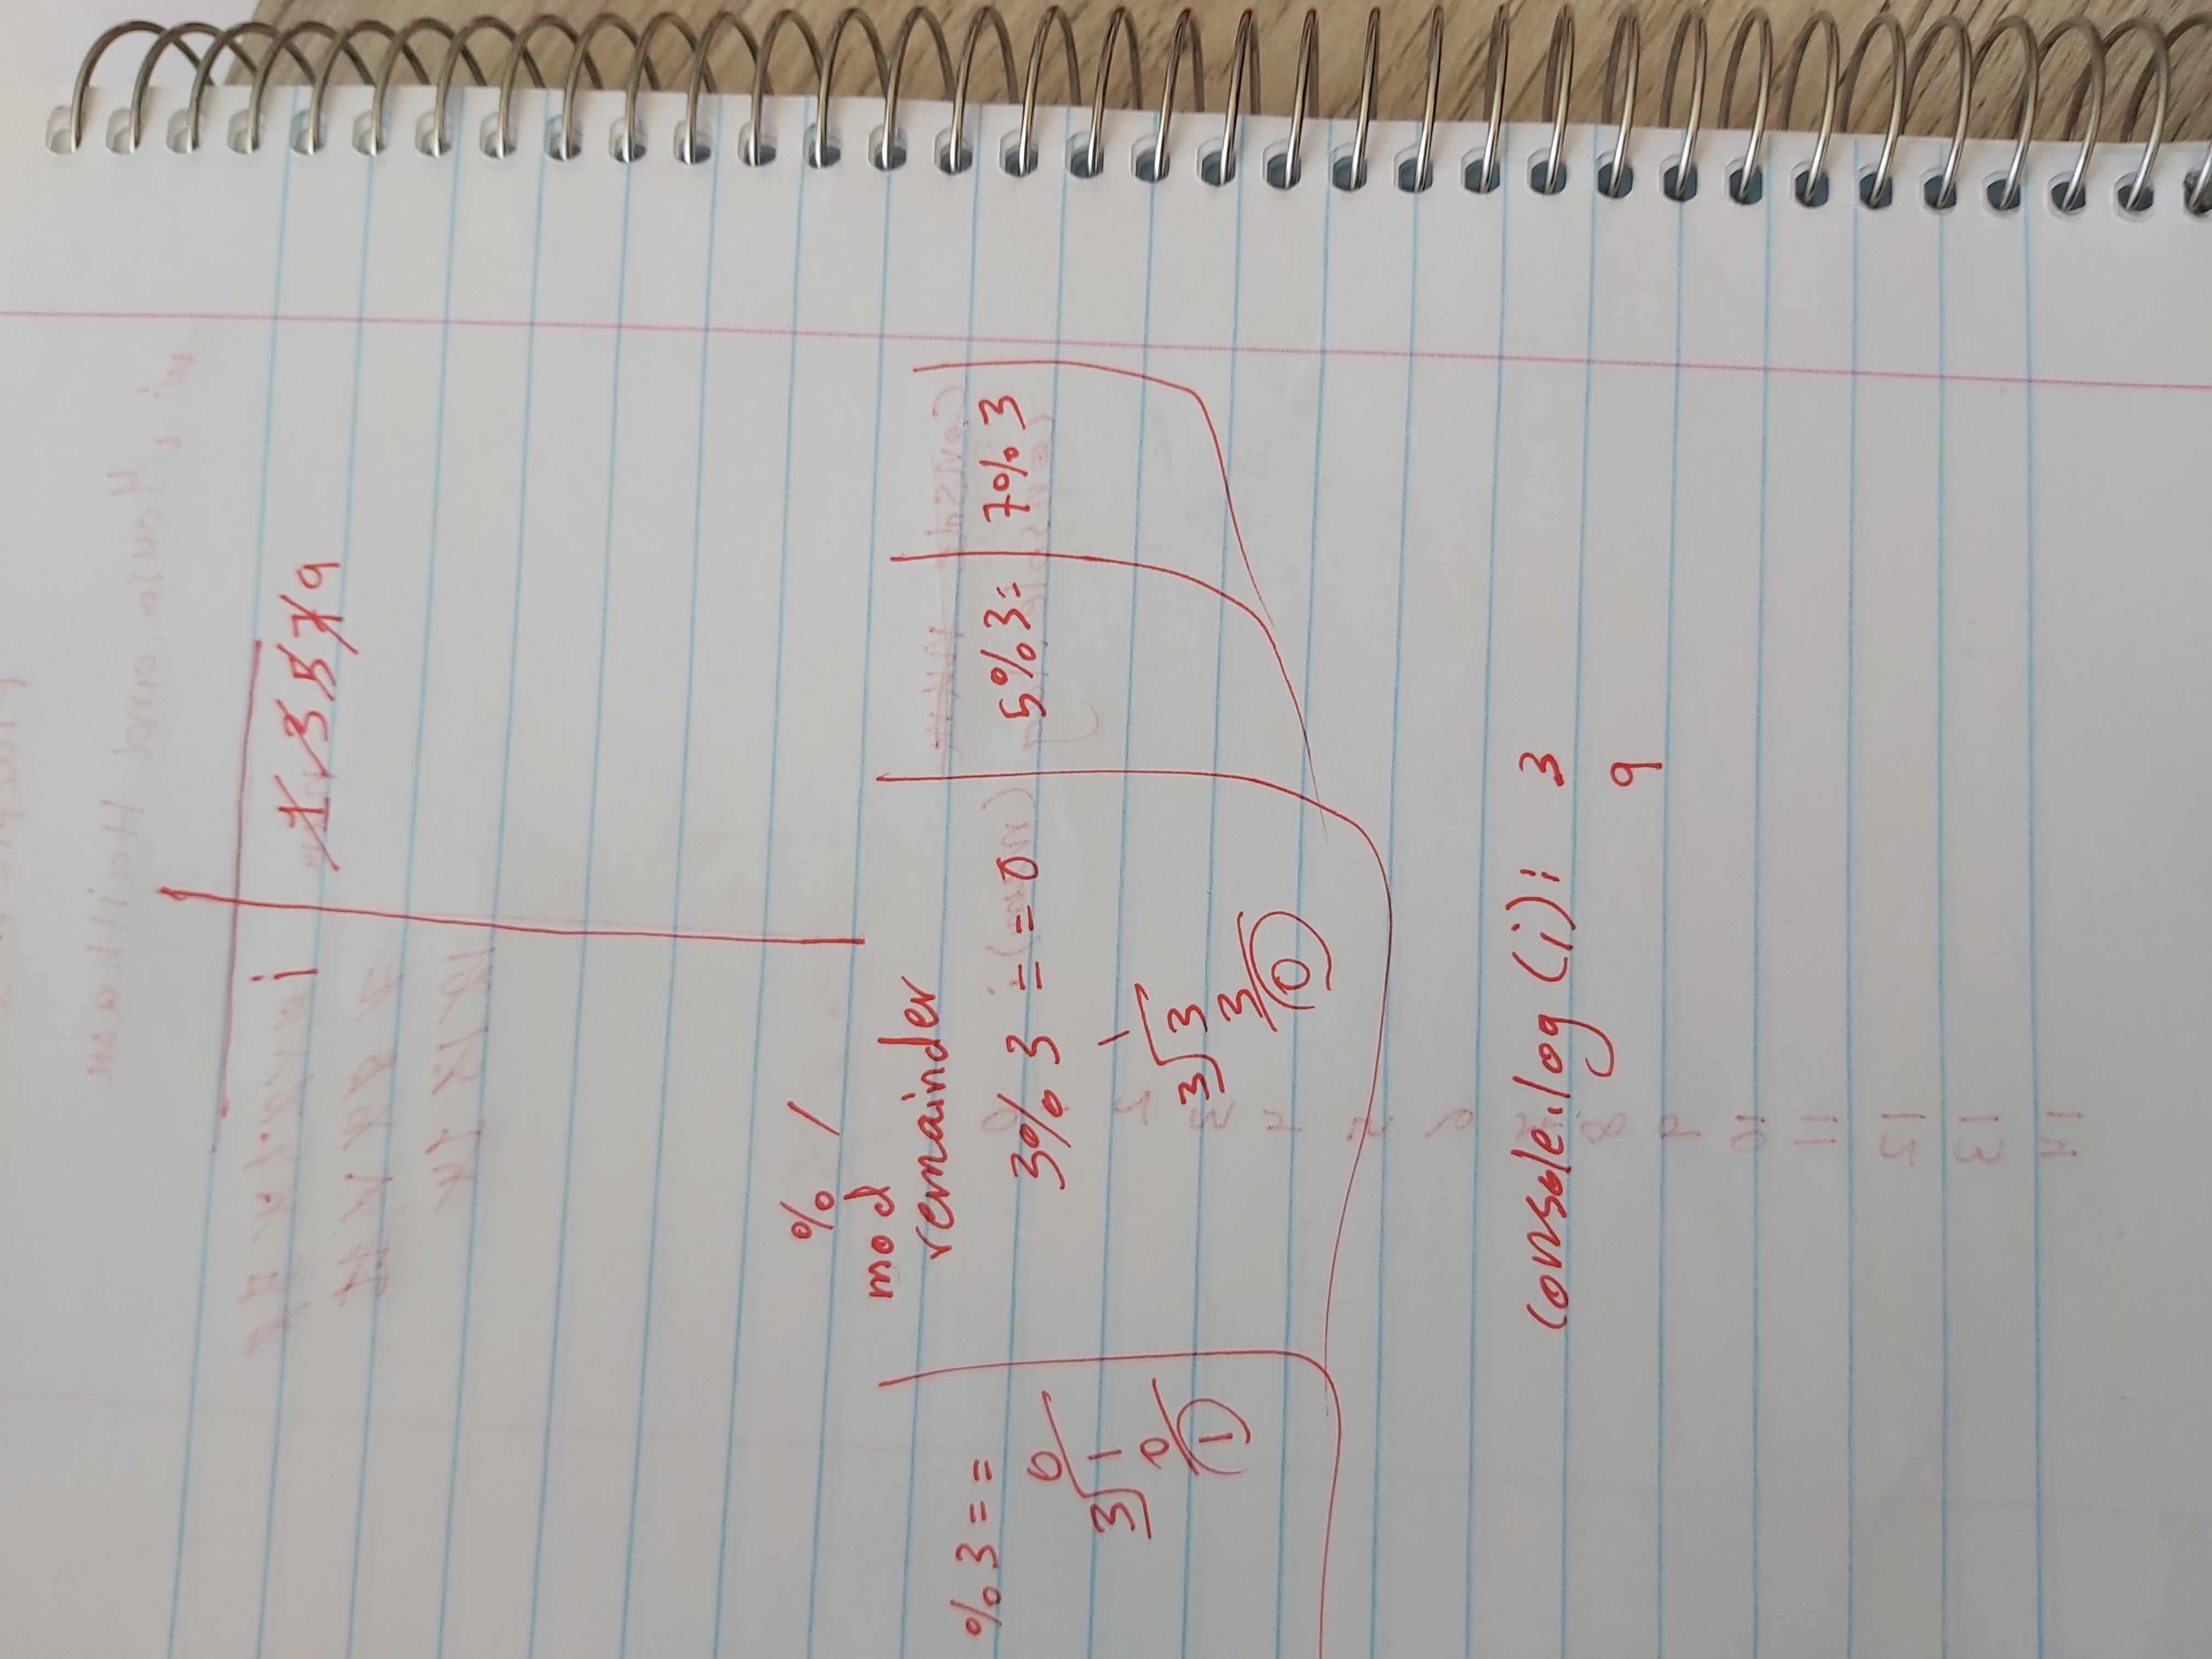 i 1 3 5 7 9
% /
mod
remainder
% 3 = =
0
3 1
0
1
3 % 3 = = 0
1
3 3
3
0
5 % 3 =
7 % 3
console.log (i): 3
9